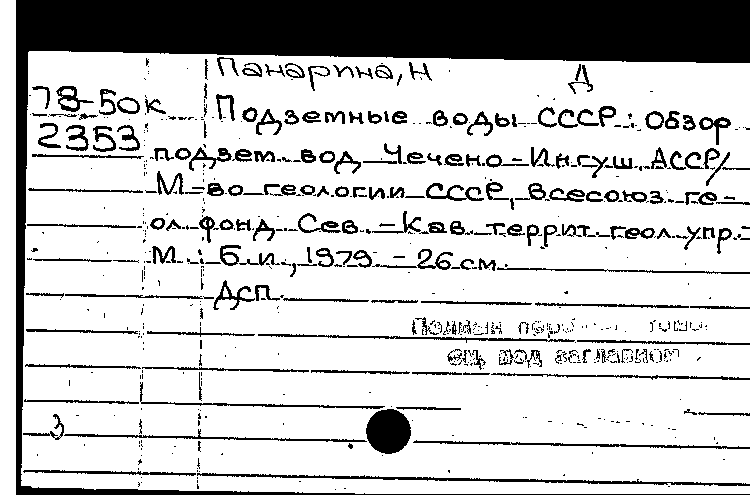 Панарина, Н Д
78-50к Подземные воды СССР: Обзор
2353 подзем. вод Чечено-Ингуш. АССР/
М-во геологии СССР, Всесоюз. ге-
ол. фонд Сев.-Кав. террит. геол. упр.-
М.: Б.и., 1979. - 26 см.
ДСП.
Полный
см. под заглавием
3